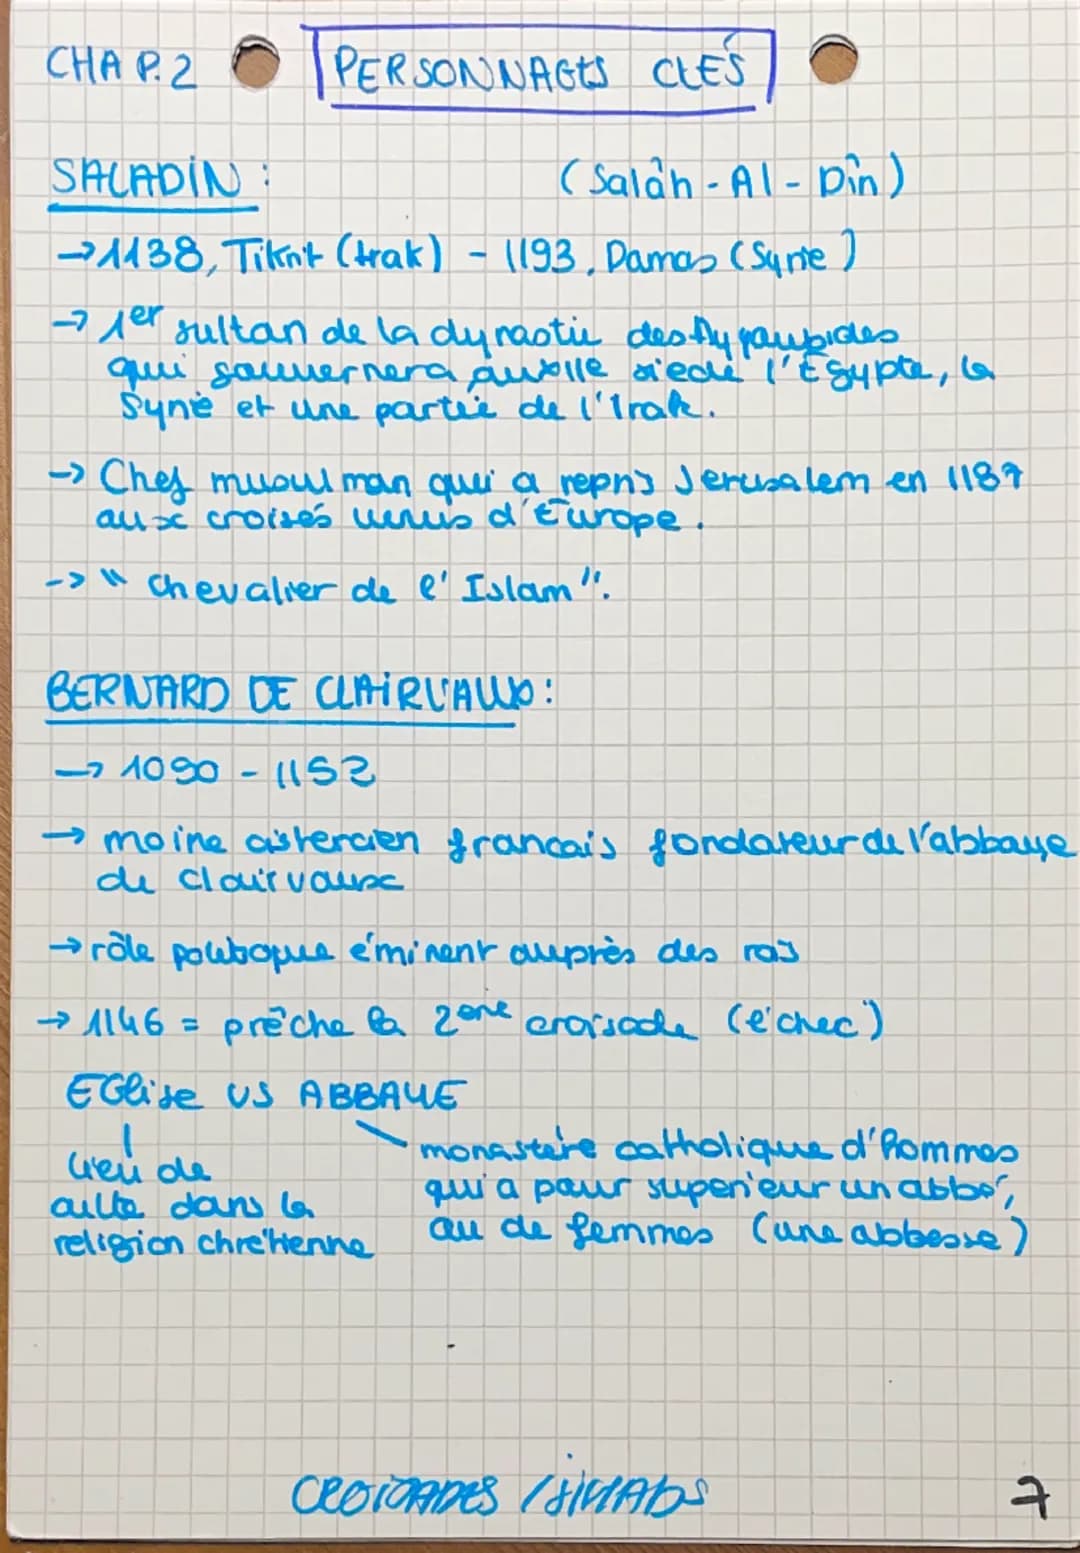 CHAP.2 PERSONNAGES CLÉS
SALADIN : (Salâh - Al - Dîn)
→ 1138, Tikrit (Irak) - 1193, Damas (Syrie)
→ 1er sultan de la dynastie des Ayyoubides
qui gouvernera au XIIe siècle l'Égypte, la
Syrie et une partie de l'Irak.
→ Chef musulman qui a repris Jerusalem en 1187
aux croisés venus d'Europe.
-> " Chevalier de l'Islam".
BERNARD DE CLAIRVAUX :
→ 1090 - 1152
→ moine cistercien francais fondateur de l'abbaye
de Clairvaux
→ rôle politique éminent auprès des rois
→ 1146 = prêche la 2ème croisade (échec)
EGlise VS ABBAYE
lieu de
culte dans la
religion chrétienne
monastère catholique d'hommes
qui a pour supérieur un abbé,
ou de femmes (une abbesse)
CROISADES / JIHADS 7